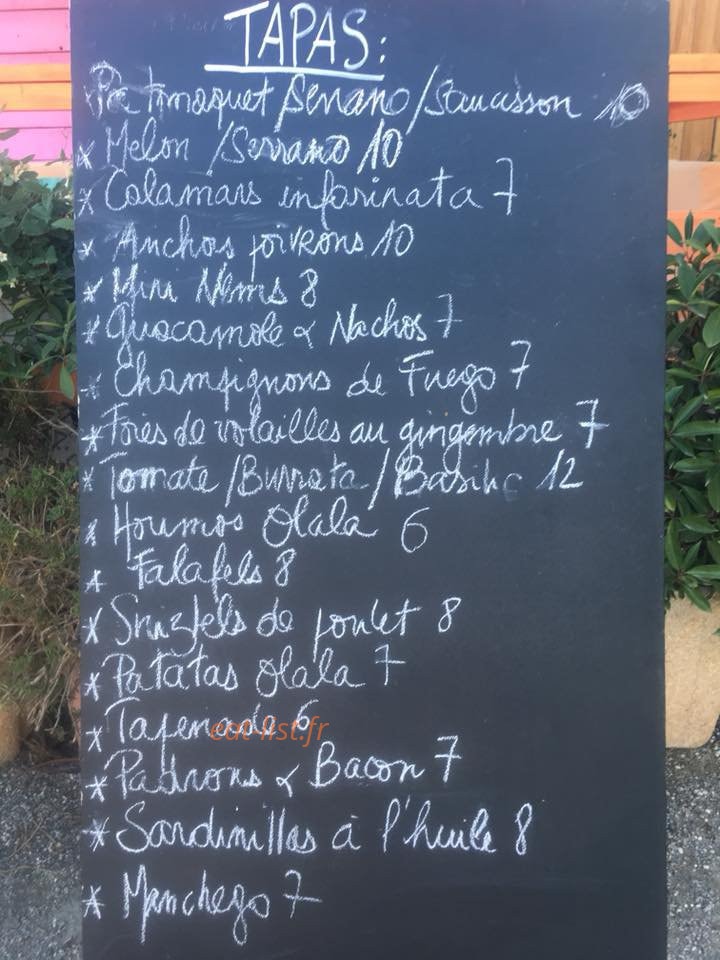 TAPAS:
* Pa Tomaquet/Serrano/Saucisson 10
* Melon /Serrano 10
* Calamars infarinata 7
* Anchois poivrons 10
* Mini Nems 8
* Guacamole & Nachos 7
* Champignons de Fuego 7
* Foies de volailles au gingembre 7
* Tomate/Burrata/Basilic 12
* Houmos Olala 6
* Falafels 8
* Snizfels de poulet 8
* Patatas Olala 7
* Tapenade 6
eat-list.fr
* Padrons & Bacon 7
* Sardinillas à l'huile 8
* Manchego 7